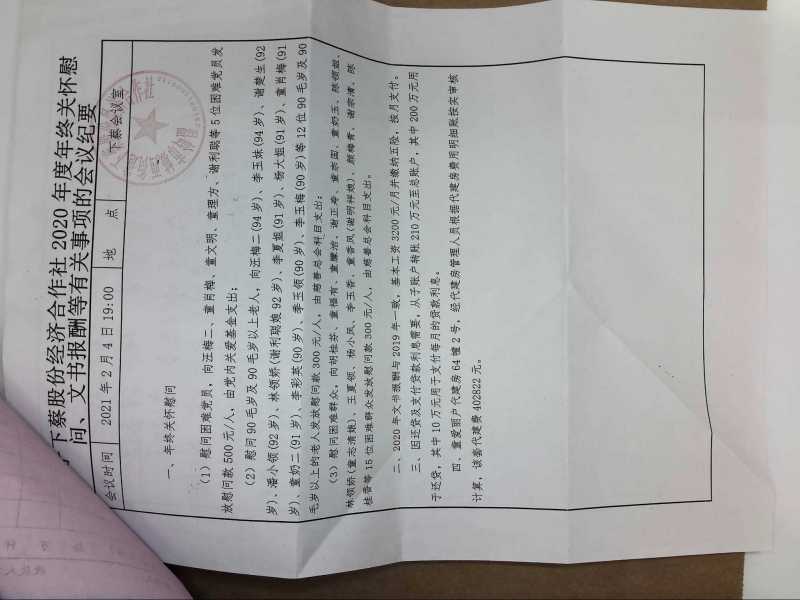 下蔡股份经济合作社 2020 年度年终关怀慰
问、文书报酬等有关事项的会议纪要
会议时间 2021 年 2 月 4 日 19:00 地 点 下蔡会议室
一、年终关怀慰问
（1）慰问困难党员，向汪梅二、童肖梅、童文明、童理方、谢利聪等 5 位困难党员发
放慰问款 500 元/人，由党内关爱基金支出；
（2）慰问 90 毛岁及 90 毛岁以上老人，向汪梅二(94 岁)、李玉妹(94 岁)、谢楚生(92
岁)、潘小领(92 岁)、林领娇(谢利聪娘 92 岁)、李夏姐(91 岁)、杨大姐(91 岁)、童肖梅(91
岁)、童奶二(91 岁)、李彩英(90 岁)、李玉领(90 岁)、李玉梅(90 岁)等 12 位 90 毛岁及 90
毛岁以上的老人发放慰问款 300 元/人，由慈善总会科目支出；
（3）慰问困难群众，向胡桂芬、童福有、童 谢正 童宗 童奶玉、陈领姐、
林领娇(童志清娘)、王夏领、杨小凤、李玉香、童香凤(谢明祥娘)、颜梅青、谢宗清、陈
桂香等 15 位困难群众发放慰问款 300 元/人，由慈善总会科目支出。
二、2020 年文书报酬与 2019 年一致，基本工资 3200 元/月并缴纳五险，按月支付。
三、因还贷及支付贷款利息需要，从子账户转账 210 万元至总账户，其中 200 万元用
于还贷，其中 10 万元用于支付每月的贷款利息。
四、童爱丽户代建房 64 幢 2 号，经代建房管理人员根据代建房费用明细账按实审核
计算，该套代建费 402822 元。